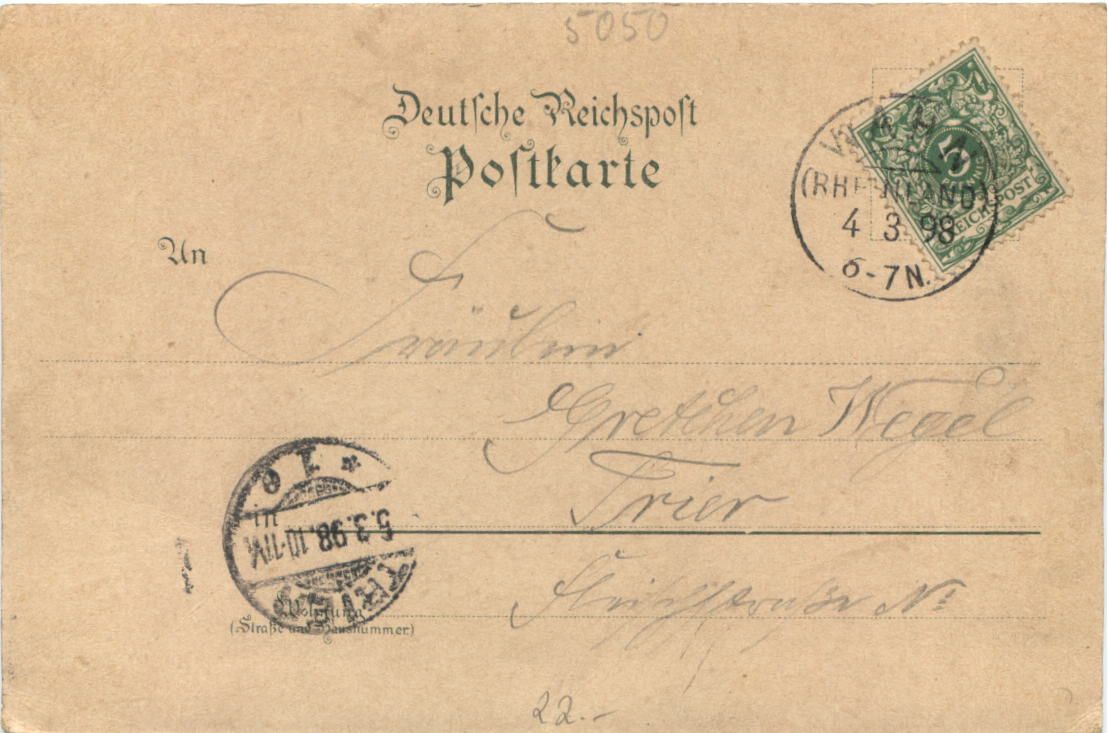 5050
Deutsche Reichspost
Postkarte
5
REICHSPOST
(RHEINLAND)
4 3 98
6-7N.
An
Fräulein
Gretchen Wegel
Trier
Fleischstraße No
TRIER
5.3.98.10-11V.
Wohnung
(Straße und Hausnummer)
22.-